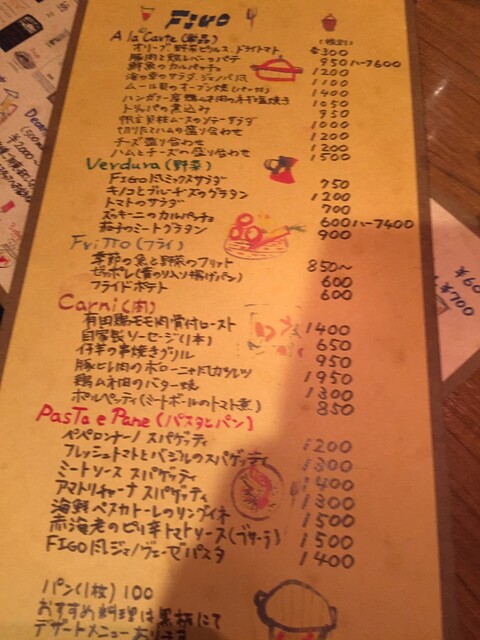 Figo
A la Carte (前菜) (税別)
オリーブ 野菜ピクルス ドライトマト 各300
豚肉と鶏レバーのパテ 950 ハーフ600
鮮魚のカルパッチョ 1200
海の幸のサラダ ジェノバ風 1100
ムール貝のオーブン焼き(パン付) 1400
ハンガリー産鴨ムネ肉のネギ塩焼き 1050
トリッパの煮込み 950
ムースのソテーサラダ 1000
切りたてハムの盛り合わせ 1200
チーズ盛り合わせ 1200
ハムとチーズの盛り合わせ 1500
Verdura (野菜)
FIGO風ミックスサラダ 750
キノコとブルーチーズのグラタン 1200
トマトのサラダ 700
ズッキーニのカルパッチョ 600 ハーフ400
茄子のミートグラタン 900
Fritto (フライ)
季節の魚と野菜のフリット 850〜
ゼッポレ(青のり入り揚げパン) 600
フライドポテト 600
Carni (肉)
有田鶏モモ肉骨付ロースト 1400
自家製ソーセージ(1本) 650
仔羊の串焼きグリル 950
豚ヒレ肉のボローニャ風カツレツ 1950
鶏ムネ肉のバター焼 1300
ポルペッティ(ミートボールのトマト煮) 850
Pasta e Pane (パスタとパン)
ペペロンチーノ スパゲッティ 1200
フレッシュトマトとバジルのスパゲッティ 1300
ミートソース スパゲッティ 1400
アマトリチャーナ スパゲッティ 1300
海鮮ペスカトーレのリングイネ 1500
赤海老のピリ辛トマトソース(ブサーラ) 1500
FIGO風ジェノヴェーゼパスタ 1400
パン(1枚) 100
おすすめ料理は黒板にて
デザートメニューあります